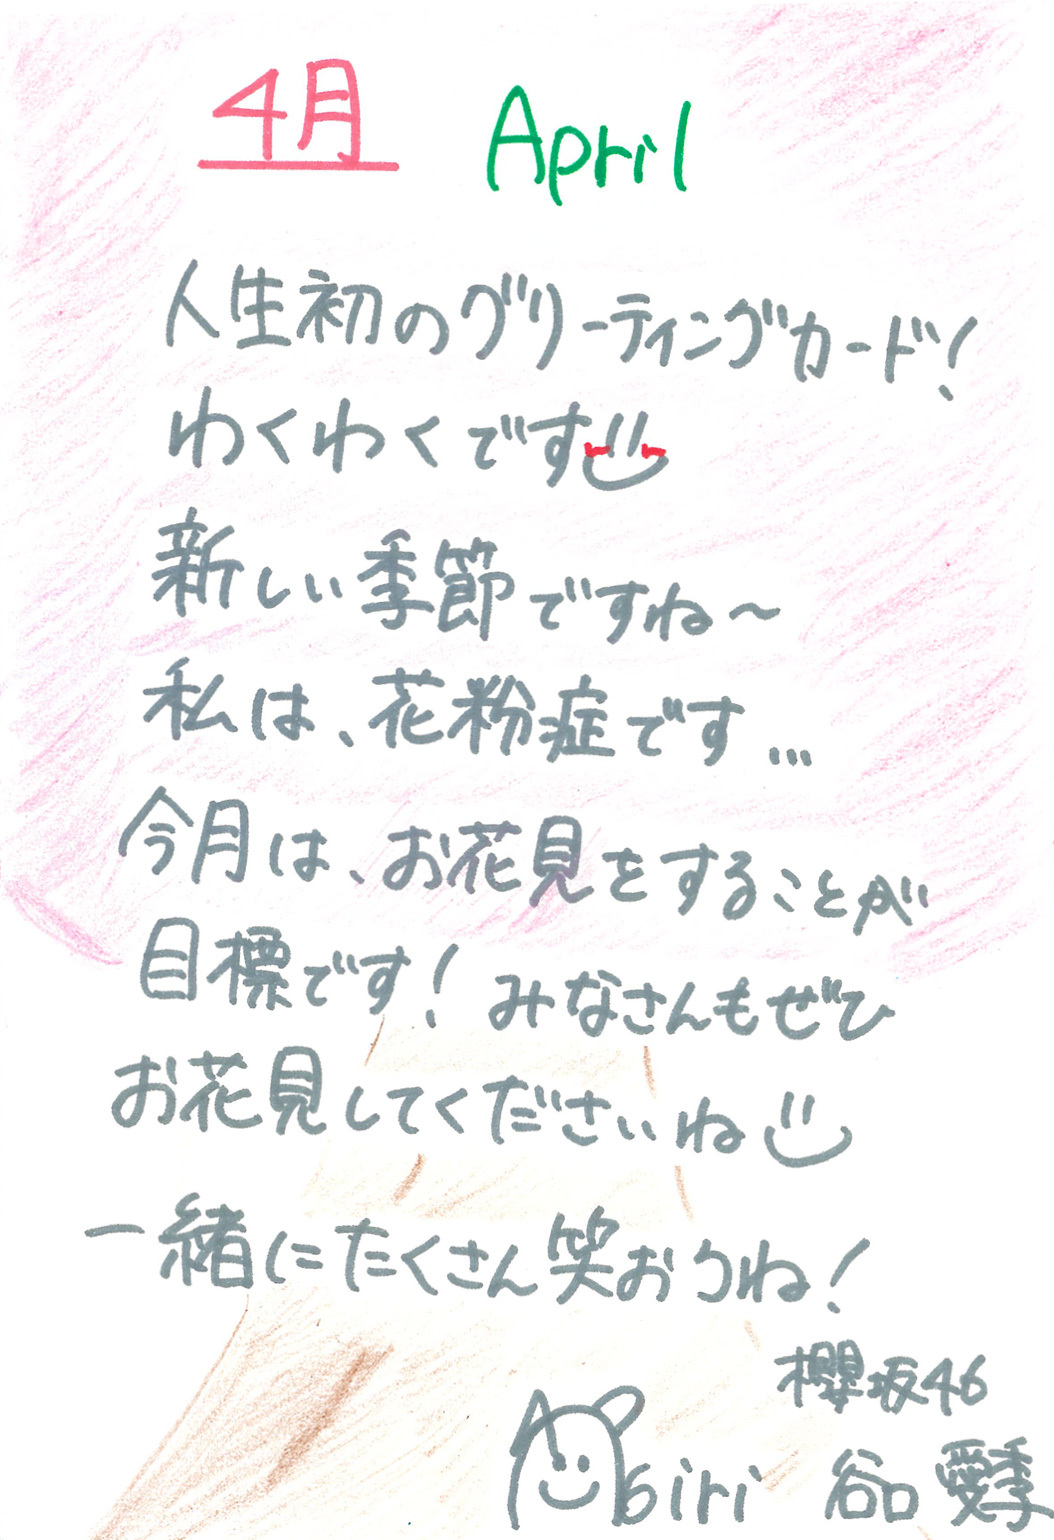 4月 April
人生初のグリーティングカード!
わくわくです
新しい季節ですね～
私は、花粉症です…
今月は、お花見をすることが
目標です! みなさんもぜひ
お花見してくださいね
一緒にたくさん笑おうね!
櫻坂46
Airi 谷口 愛季